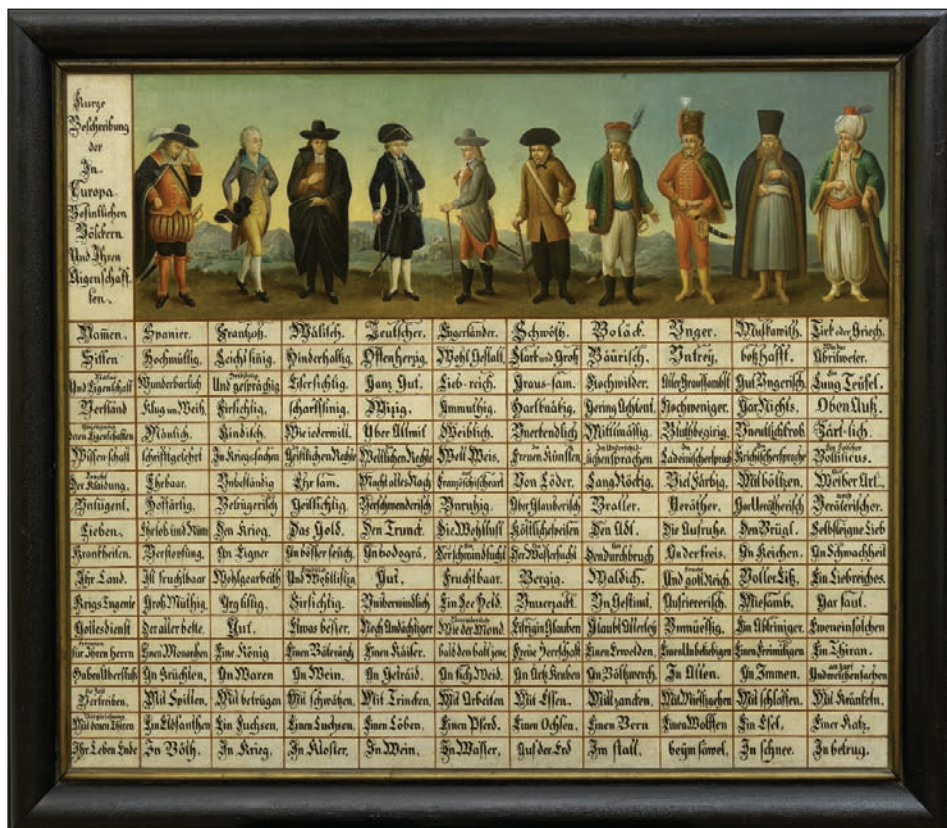 Kurze
Beschreibung
der
In
Europa
Befintlichen
Völckern
Und Ihren
Aigenschaff-
ten.
Namen. Spanier. Frantzoß. Wälisch. Teutscher. Engerländer. Schwöth. Boläck. Unger. Muskawith. Tirk oder Griech.
Sitten Hochmüttig. Leicht sinig. Hinderhaltig. Offenherzig. Wohl Gestalt. Stark und Groß Bäurisch. Untrey. boßhafft. Abrilweter.
Und Eigenschaft Wunderbarlich Und gesprächig Eifersichtig. Ganz Gut. Lieb-reich. Graus-sam. Nochwilder. Aller Graussambst Gut Ungerisch. Lung Teüfel.
Verstand Klug un Weiß. Firsichtig. scharffsinig. Wizig. Ammuthig. Hartknäkig. Gering Achtent. Nochweniger. Gar Nichts. Oben Auß.
deren Eigenschaften Mänlich. Kindisch. Wie iederwill. Über Allmit Weiblich. Unerkendlich Mittlmässig. Bluthbegirig. Unentlichkrob Zärt-lich.
Wissenschaft schrifftgelehrt In Kriegssachen Geistlichen Rechte Weltlichen Rechte Welt Weis. Freuen Künsten lichensprachen Ladeinischersprach Krichischersprache Bolliticus.
Der Klaidung. Ehrbaar. Unbeständig Ehrsam. Macht alles Nach Französchischeart Von Löder. Lang Röckig. Viel Färbig. Mit böltzen. Weiber Art.
Untugent. Hoffärtig. Betrügerisch Geillsichtig. Verschwenderisch Unruhig. Aber Glauberisch Braller. Veräther. Gar Verätherisch Verätterischer.
Lieben. Ehrlob und Rüm Den Krieg. Das Gold. Den Trunck. Die Wohllust Köstlichespeisen Den Adl. Die Aufruhe. Den Brügl. Selbsteigne Lieb
Krankheiten. Verstopfung. An Eigner An bösser seüch. An bodogrä. Der schwindsucht Der Wassersucht Den durchbruch An der freis. An Keichen. An Schwachheit
Ihr Land. Ist fruchtbaar Wohlgearbeith Und Wohllistig Gut. Fruchtbaar. Bergig. Waldich. Und golt Reich. Voller Eiß. Ein Liebreiches.
Krigs Tugente Groß Müthig. Arg listig. Firsichtig. Unüberwindlich Ein See Held. Unverzackt. Un Gestimt. Aufriererisch. Miesamb. Gar faul.
Gottesdienst Der aller beste. Gut. Etwas besser. Noch Andächtiger Wie der Mond. Eifrig in Glauben Glaubt Allerley Unmüessig. Ein Abtriniger. Eweneinsolchen
Für Ihren Herrn Einen Monarchen Eine König Einen Bäterärch Einen Käiser. bald den balt jene Freüe Herrschaft Einen Erwelden. Einen Unbeliebigen Einen Freiwilligen Ein Thiran.
Haben Überfluß An Früchten. An Waren An Wein. An Geträid. An fich Weid. An Ärtz Kruben An Böltzwerch. In Allen. An Immen. Und weichen sachen
Vertreiben. Mit Spillen. Mit betrügen Mit schwätzen. Mit Trincken. Mit Arbeiten Mit Essen. Mit zancken. Mit Miessigehen Mit schlaffen. Mit Kränkeln.
Mit denen Thiren Ein Elofanthen Ein Fuchsen. Einen Luchsen. Einen Löben. Einen Pferd. Einen Ochsen. Einen Bern Einen Wolffen Ein Esel. Einer Katz.
Ihr Leben Ende In Böth. In Krieg. In Kloster. In Wein. In Wasser. Auf der Erd Im stall. beÿm säwel. In schnee. In betrug.